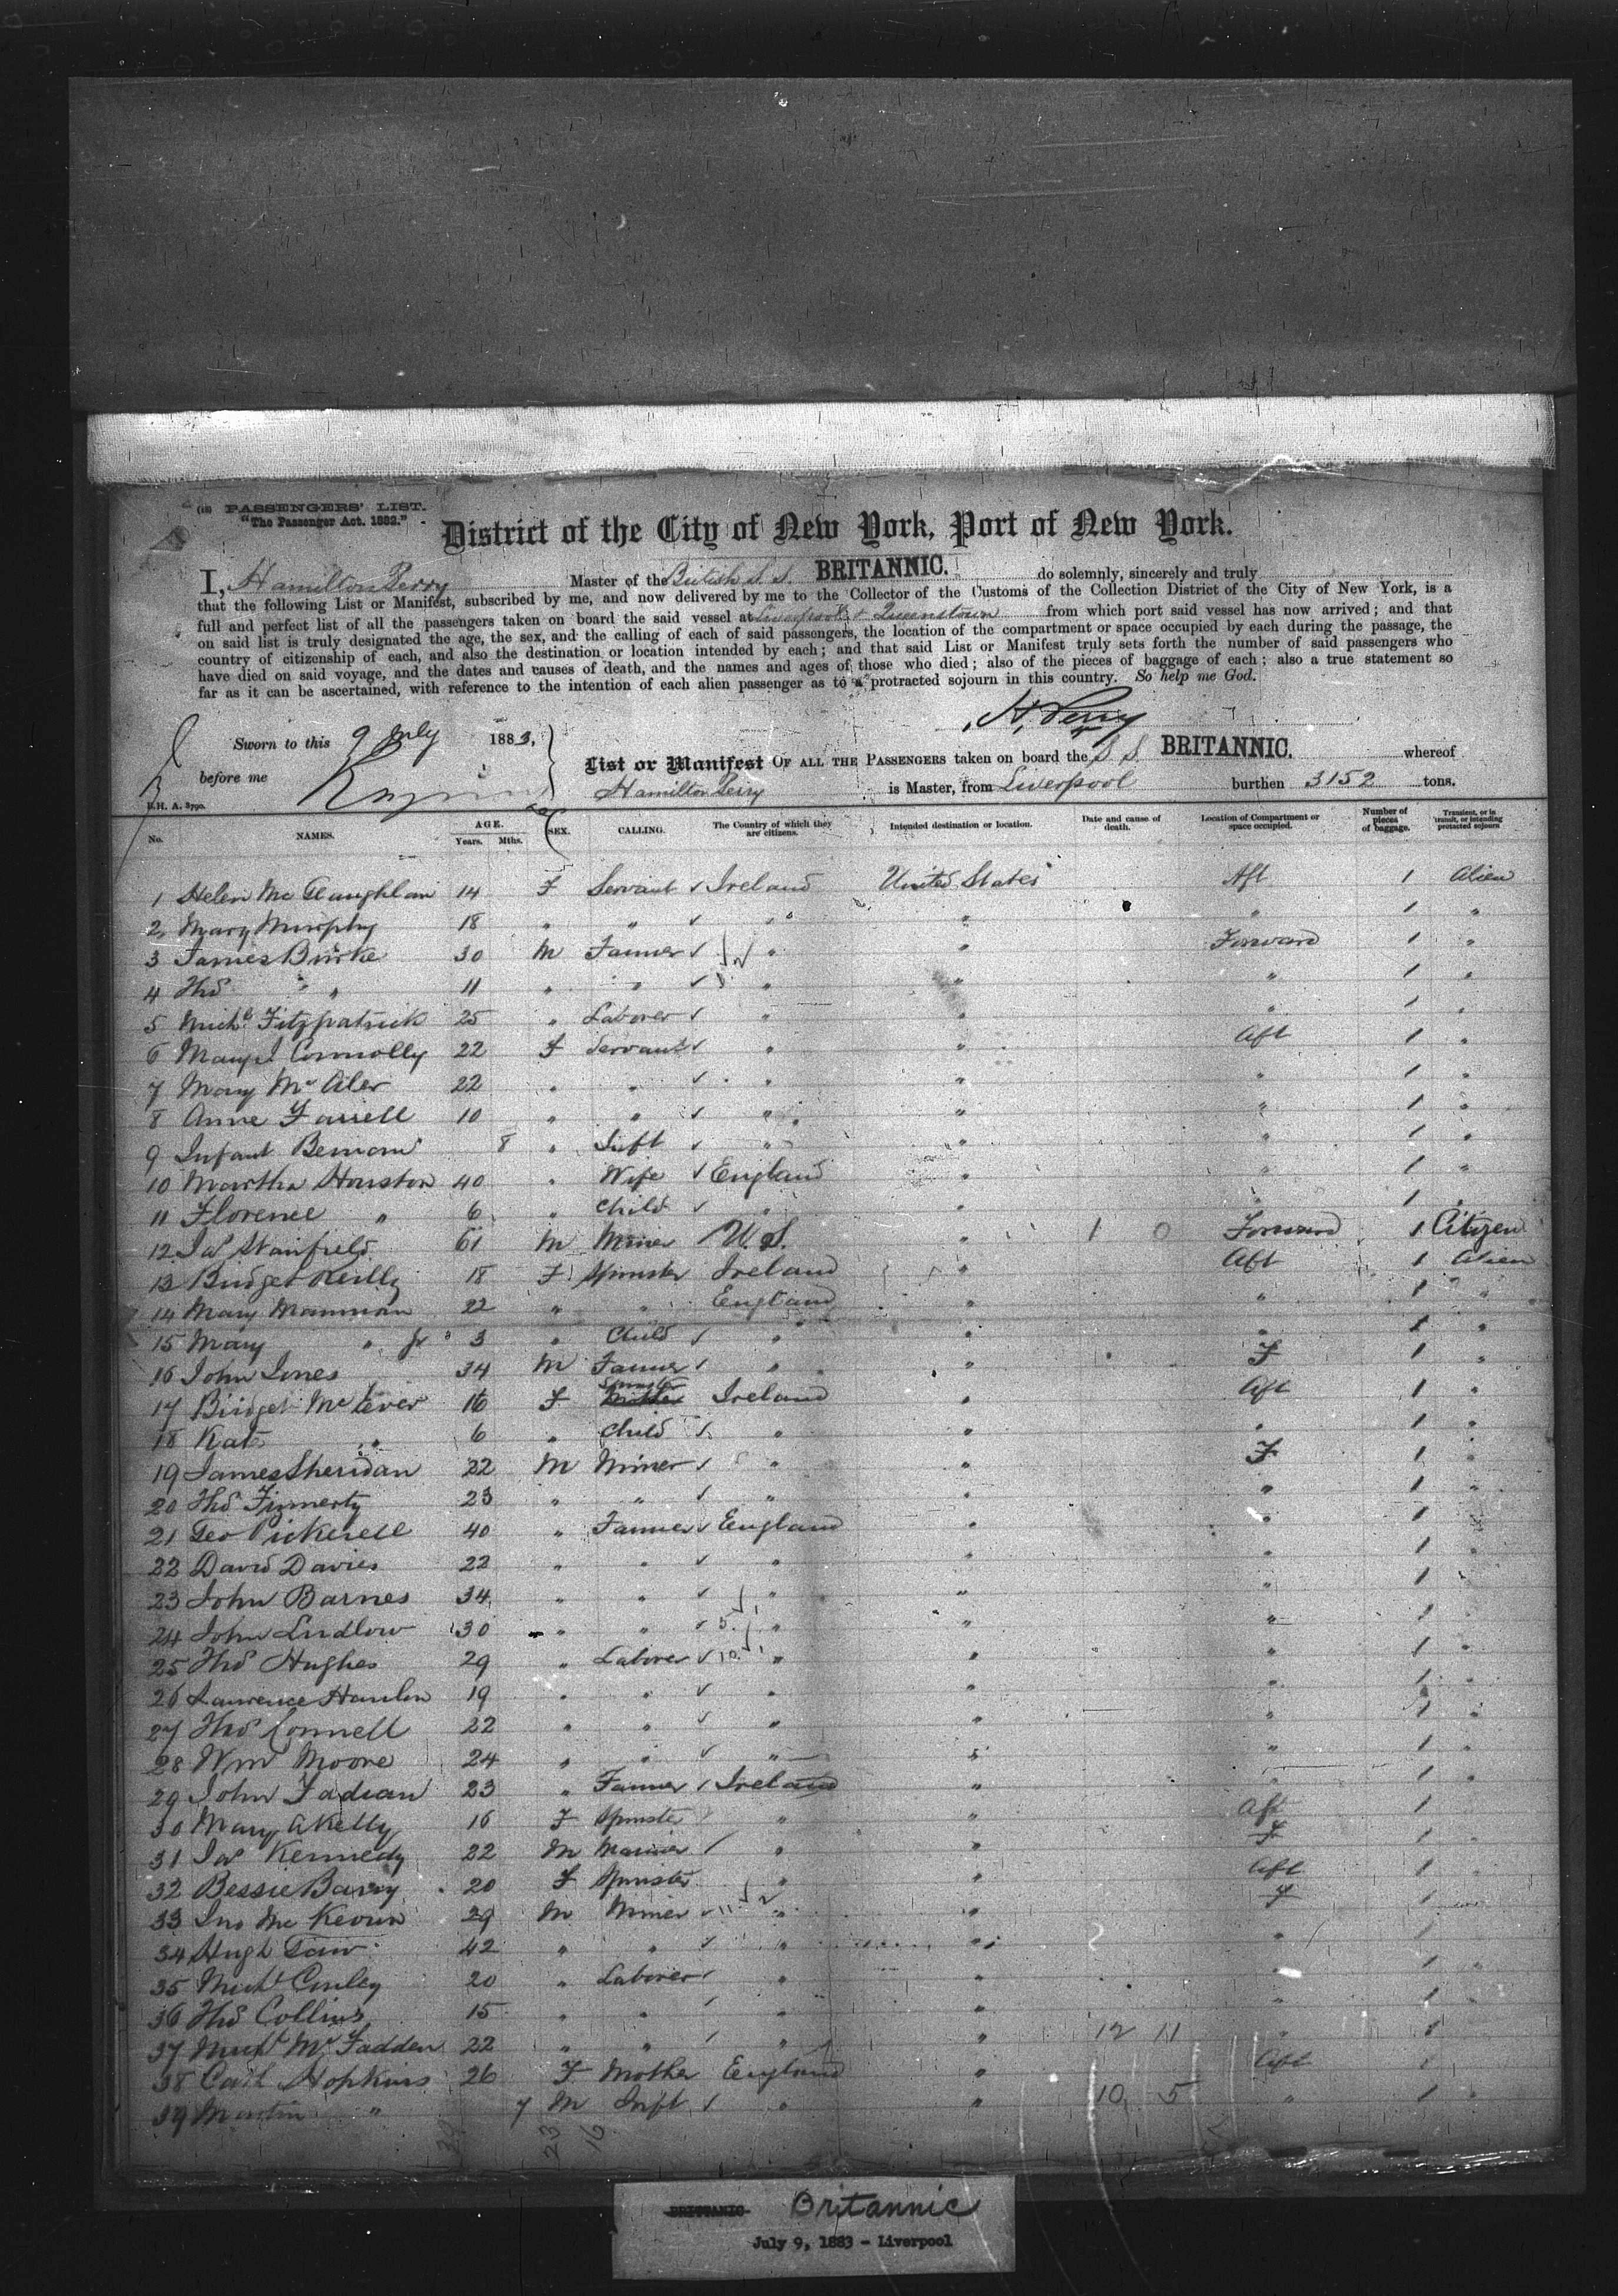 PASSENGERS' LIST.
"The Passenger Act. 1882."
District of the City of New York, Port of New York.
I, Hamilton Perry Master of the British S.S. BRITANNIC. do solemnly, sincerely and truly
that the following List or Manifest, subscribed by me, and now delivered by me to the Collector of the Customs of the Collection District of the City of New York, is a
full and perfect list of all the passengers taken on board the said vessel at Liverpool & Queenstown from which port said vessel has now arrived; and that
on said list is truly designated the age, the sex, and the calling of each of said passengers, the location of the compartment or space occupied by each during the passage, the
country of citizenship of each, and also the destination or location intended by each; and that said List or Manifest truly sets forth the number of said passengers who
have died on said voyage, and the dates and causes of death, and the names and ages of those who died; also of the pieces of baggage of each; also a true statement so
far as it can be ascertained, with reference to the intention of each alien passenger as to a protracted sojourn in this country. So help me God.
H. Perry
Sworn to this 9 July 1883,
before me
List or Manifest OF ALL THE PASSENGERS taken on board the S.S. BRITANNIC. whereof
Hamilton Perry is Master, from Liverpool burthen 3152 tons.
B.H. A. 3790.
No. NAMES. AGE. Years. Mths. SEX. CALLING. The Country of which they are citizens. Intended destination or location. Date and cause of death. Location of Compartment or space occupied. Number of pieces of baggage. Transient, or in transit, or intending protracted sojourn
1 Helen Mc Glaughlan 14 F Servant ✓ Ireland United States Aft 1 Alien
2 Mary Murphy 18 " " ✓ " " " 1 "
3 James Burke 30 M Farmer ✓ " " Forward 1 "
4 Thos " 11 " " ✓ " " " 1 "
5 Michl Fitzpatrick 25 " Laborer ✓ " " " 1 "
6 Margt Connolly 22 F Servant ✓ " " Aft 1 "
7 Mary Mc Aler 22 " " ✓ " " " 1 "
8 Anne Farrell 10 " " ✓ " " " 1 "
9 Infant 8 " Inft ✓ " " " 1 "
10 Martha Houston 40 " Wife ✓ England " " 1 "
11 Florence " 6 " Child ✓ " " " 1 "
12 Jas Stanfield 61 M Miner U.S. " 1 0 Forward 1 Citizen
13 Bridget Reilly 18 F Spinster Ireland " Aft 1 Alien
14 Mary 22 " " England " " 1 "
15 Mary " Jr 3 " Child ✓ " " " 1 "
16 John Jones 34 M Farmer ✓ " " F 1 "
17 Bridget Mc Kever 16 F Spinster Ireland " Aft 1 "
18 Kate " 6 " Child ✓ " " " 1 "
19 James Sheridan 22 M Miner ✓ " " F 1 "
20 Thos Finnerty 23 " " ✓ " " " 1 "
21 Geo Pickerell 40 " Farmer ✓ England " " 1
22 David Davies 22 " " ✓ " " " 1 "
23 John Barnes 34 " " ✓ " " " 1
24 John Ludlow 30 " " ✓ 5 " " " 1
25 Thos Hughes 29 " Laborer ✓ 10 " " " 1 "
26 Laurence Hanlon 19 " " ✓ " " " 1 "
27 Thos Connell 22 " " ✓ " " " 1 "
28 Wm Moore 24 " " ✓ " " " 1 "
29 John Fadian 23 " Farmer ✓ Ireland " " 1 "
30 Mary A Kelly 16 F Spinster " " Aft 1
31 Jas Kennedy 22 M Mariner ✓ " " F 1
32 Bessie Barry 20 F Spinster " " Aft 1
33 Jno Mc Keown 29 M Miner ✓ 11 " " F 1
34 Hugh 42 " " ✓ " " " 1
35 Michl Conley 20 " Laborer ✓ " " " 1
36 Thos Collins 15 " " ✓ " " " 1
37 Michl Mc Fadden 22 " " ✓ " " 12 11 " 1
38 Cath Hopkins 26 F Mother England " Aft 1
39 Martin " 7 M Inft ✓ " " 10 5 " 1 "
39 23 16
BRITTANIC Britannic
July 9, 1883 - Liverpool